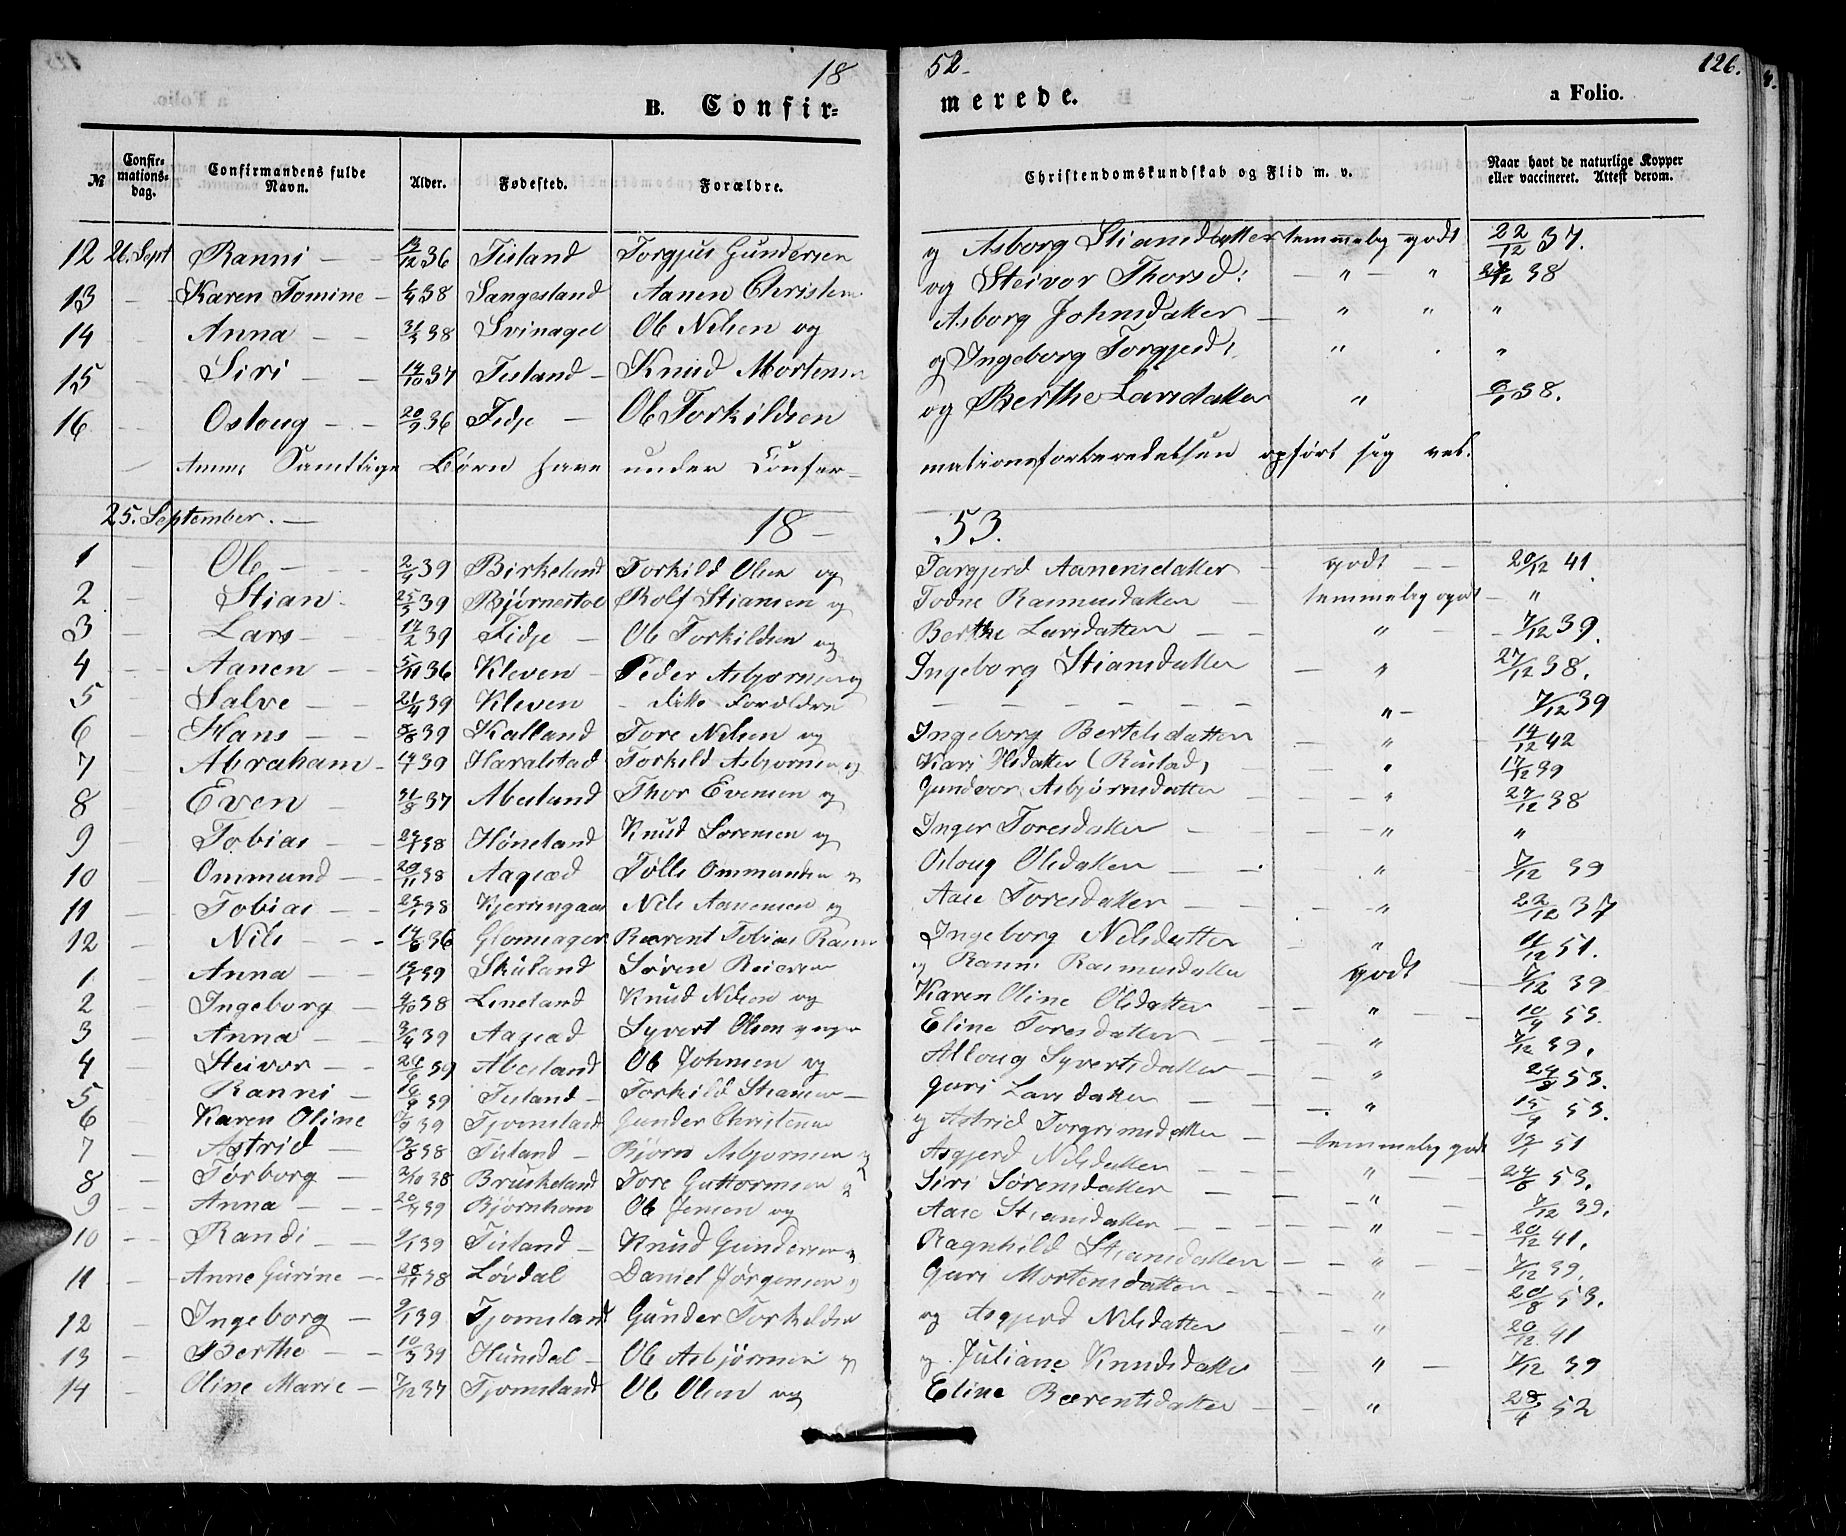 18 52. 126.
B. Confir= merede. a Folio.
№ Confir=mations=dag. Confirmandens fulde Navn. Alder. Fødested. Forældre. Christendomskundskab og Flid m. v. Naar havt de naturlige Kopper eller vaccineret. Attest derom.
12 26. Sept Ranni 12/12 36 Tisland Torgjus Gundersen og Asborg Stiansdatter temmeleg godt 22/12 37.
13 Karen Tomine 38 Sangesland Aanen Christen og Steivor Thorsd: " " 38
14 Anna 31/5 38 Svinagel Ole Nilsen og Asborg Johnsdatter " " "
15 Siri 14/10 37 Tisland Knud Mortensen og Ingeborg Torgjersd: " "
16 Osloug 20/9 36 Fidje Ole Torkildsen og Berthe Larsdatter " 38.
Samtlige Børn have under Confir- mationsforberedelsen opført sig vel.
25. September. 18 53.
1 Ole 2/4 39 Birkeland Torkild Olsen og Torgjerd Aanensdatter godt 20/12 41
2 Stian 25/5 39 Bjørnestol Rolf Stiansen og Todne Rasmusdatter temmeleg godt "
3 Lars 17/2 39 Fidje Ole Torkildsen og Berthe Larsdatter " 7/12 39.
4 Aanen 5/11 36 Kleven Peder Asbjørnsen og Ingeborg Stiansdatter " 27/12 38.
5 Salve 21/4 39 Kleven ditto Forældre " 7/12 39
6 Hans 5/8 39 Kalland Tore Nilsen og Ingeborg Bertelsdatter " 14/12 42
7 Abraham 14/1 39 Haralstad Torkild Asbjørnsen og Kari Olsdatter " 17/12 39
8 Even 31/8 37 Abesland Thor Evensen og Gundvor Asbjørnsdatter " 27/12 38
9 Tobias 38 Høneland Knud Sørensen og Inger Toresdatter " "
10 Ommund 20/11 38 Aagsæd Tølle Ommundsen og Osloug Olsdatter " 7/12 39
11 Tobias 38 Kjerringaas Nils Aanensen og Aase Toresdatter " 22/12 37
12 Nils 36 Glomsager Bærent Tobias Ingeborg Nilsdatter " 11/12 51.
1 Anna 39 Skuland Søren Reiersen og Ranni Rasmusdatter godt 7/12 39
2 Ingeborg 9/10 38 Lineland Knud Nilsen og Karen Oline Olsdatter " 10/9 53.
3 Anna 3/4 39 Aagsæd Syvert Olsen Eline Toresdatter " 7/12 39.
4 Steivor 39 Abesland Ole Johnsen og Alloug Syvertsdatter " 53.
5 Ranni 39 Tisland Torkild Stiansen Guri Larsdatter " 15/9 53.
6 Karen Oline 39 Tjomsland Gunder Christensen og Astrid Torgrimsdatter temmeleg godt 51
7 Astrid 13/8 38 Tisland Bjørn Asbjørnsen og Asgjerd Nilsdatter " 24/8 53.
8 Tørborg 2/10 38 Bruskeland Tore Guttormsen og Siri Sørensdatter " 7/12 39.
9 Anna 39 Bjørnhom Ole Jensen og Aase Stiansdatter " 20/12 41.
10 Randi 9/1 39 Tisland Knud Gundersen og Ragnhild Stiansdatter " 7/12 39.
11 Anne Gurine 38 Løvdal Daniel Jørgensen og Guri Mortensdatter " 20/8 53.
12 Ingeborg 9/1 39 Tjomsland Gunder Torkildsen og Asgjerd Nilsdatter " 20/12 41
13 Berthe 10/3 39 Hunsdal Ole Asbjørnsen og Juliane Knudsdatter " 7/12 39
14 Oline Marie 7/12 37 Tjomsland Ole Olsen og Eline Bærentsdatter " 28/4 52